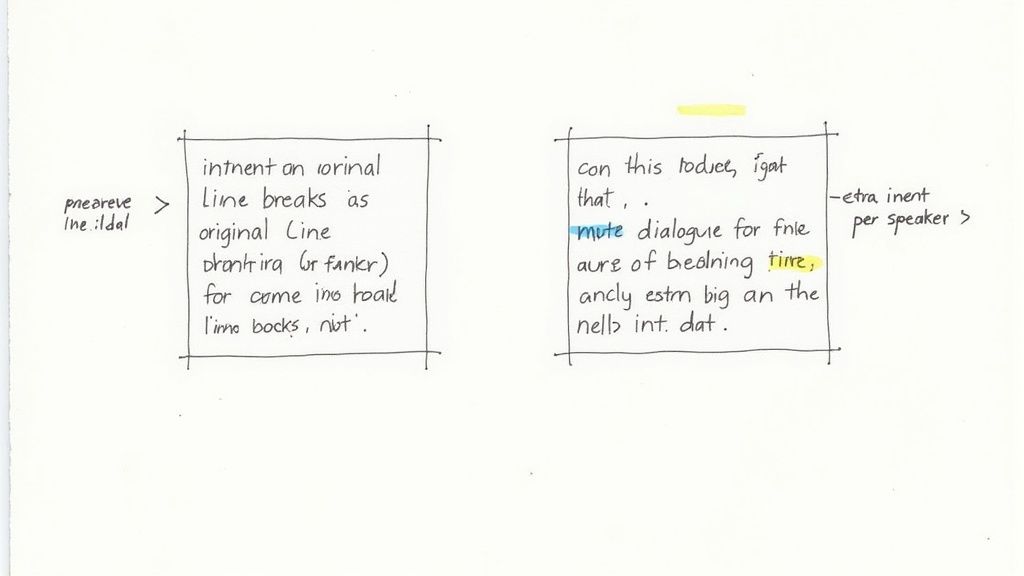 pneareve
lne ildal
intnent on iorinal
Line breaks as
original Line
(or fankr)
for come ino
bocks, nibt'.
con this todies, igat
that, .
mute dialogue for fnle
aure of beolning tirre,
ancly estm big an the
nells int. dat.
etra inent
per speaker >